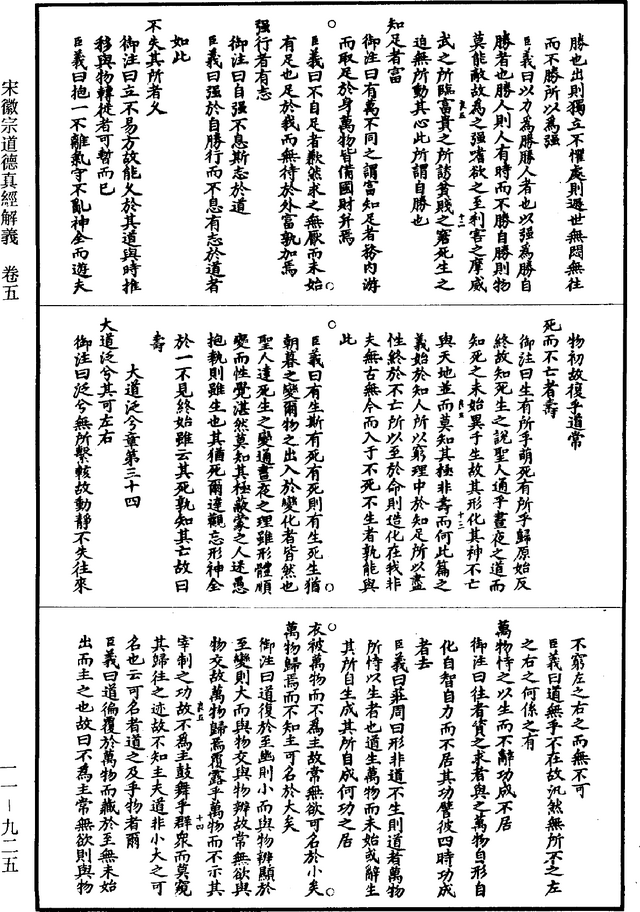 宋徽宗道德真經解義　卷五
一一－九二五
勝也出則獨立不懼處則遯世無悶無往
而不勝所以為强
臣義曰以力為勝勝人者也以强為勝自
勝者也勝人則人有時而不勝自勝則物
莫能敵故為之强嗜欲之至利害之摩威
武之所臨富貴之所誘貧賤之窘死生之
迫無所動其心此所謂自勝也
知足者富
御注曰有萬不同之謂富知足者務內游
而取足於身萬物皆備國財并焉
臣義曰不自足者歉然求之無厭而未始
有足也足於我而無待於外富孰加焉
强行者有志
御注曰自强不息斯志於道
臣義曰强於自勝行而不息有志於道者
如此
不失其所者久
御注曰立不易方故能久於其道與時推
移與物轉徙者可暫而已
臣義曰抱一不離氣守不亂神全而遊夫
物初故復乎道常
死而不亡者壽
御注曰生有所乎萌死有所乎歸原始反
終故知死生之說聖人通乎晝夜之道而
知死之未始異乎生故其形化其神不亡
與天地並而莫知其極非壽而何此篇之
義始於知人所以窮理中於知足所以盡
性終於不亡所以至於命則造化在我非
夫無古無今而入于不死不生者孰能與
此
臣義曰有生斯有死有死則有生死生猶
朝暮之變爾物之出入於變化者皆然也
聖人達死生之變通晝夜之理雖形體順
變而性覺湛然莫知其極蔽蒙之人迷愚
抱執則雖生也其猶死爾達觀忘形神全
於一不見終始雖云其死孰知其亡故曰
壽
大道泛兮章第三十四
大道泛兮其可左右
御注曰泛兮無所繫輆故動靜不失往來
不窮左之右之而無不可
臣義曰道無乎不在故汎然無所不之左
之右之何係之有
萬物恃之以生而不辭功成不居
御注曰往者資之求者與之萬物自形自
化自智自力而不居其功譬彼四時功成
者去
臣義曰莊周曰形非道不生則道者萬物
所恃以生者也道生萬物而未始或辭生
其所自生成其所自成何功之居
衣被萬物而不為主故常無欲可名於小矣
萬物歸焉而不知主可名於大矣
御注曰道復於至幽則小而與物辨顯於
至變則大而與物交與物辨故常無欲與
物交故萬物歸焉覆露乎萬物而不示其
宰制之功故不為主鼓舞乎群衆而莫窺
其歸往之迹故不知主夫道非小大之可
名也云可名者道之及乎物者爾
臣義曰道徧覆於萬物而藏於至無未始
出而主之也故曰不為主常無欲則與物